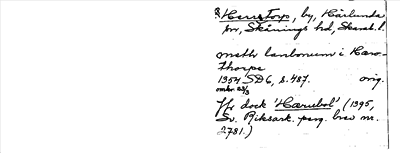 Härstorp, by, Härlunda
sn, Skånings hd, Skarab. l.
metr landbonum i Hærs-
thorpe
1354 SD 6, s. 487. orig.
omkr 23/3
Jfr dock 'Hærubol' (1395,
Sv. Riksark. perg. brev nr.
2781.)